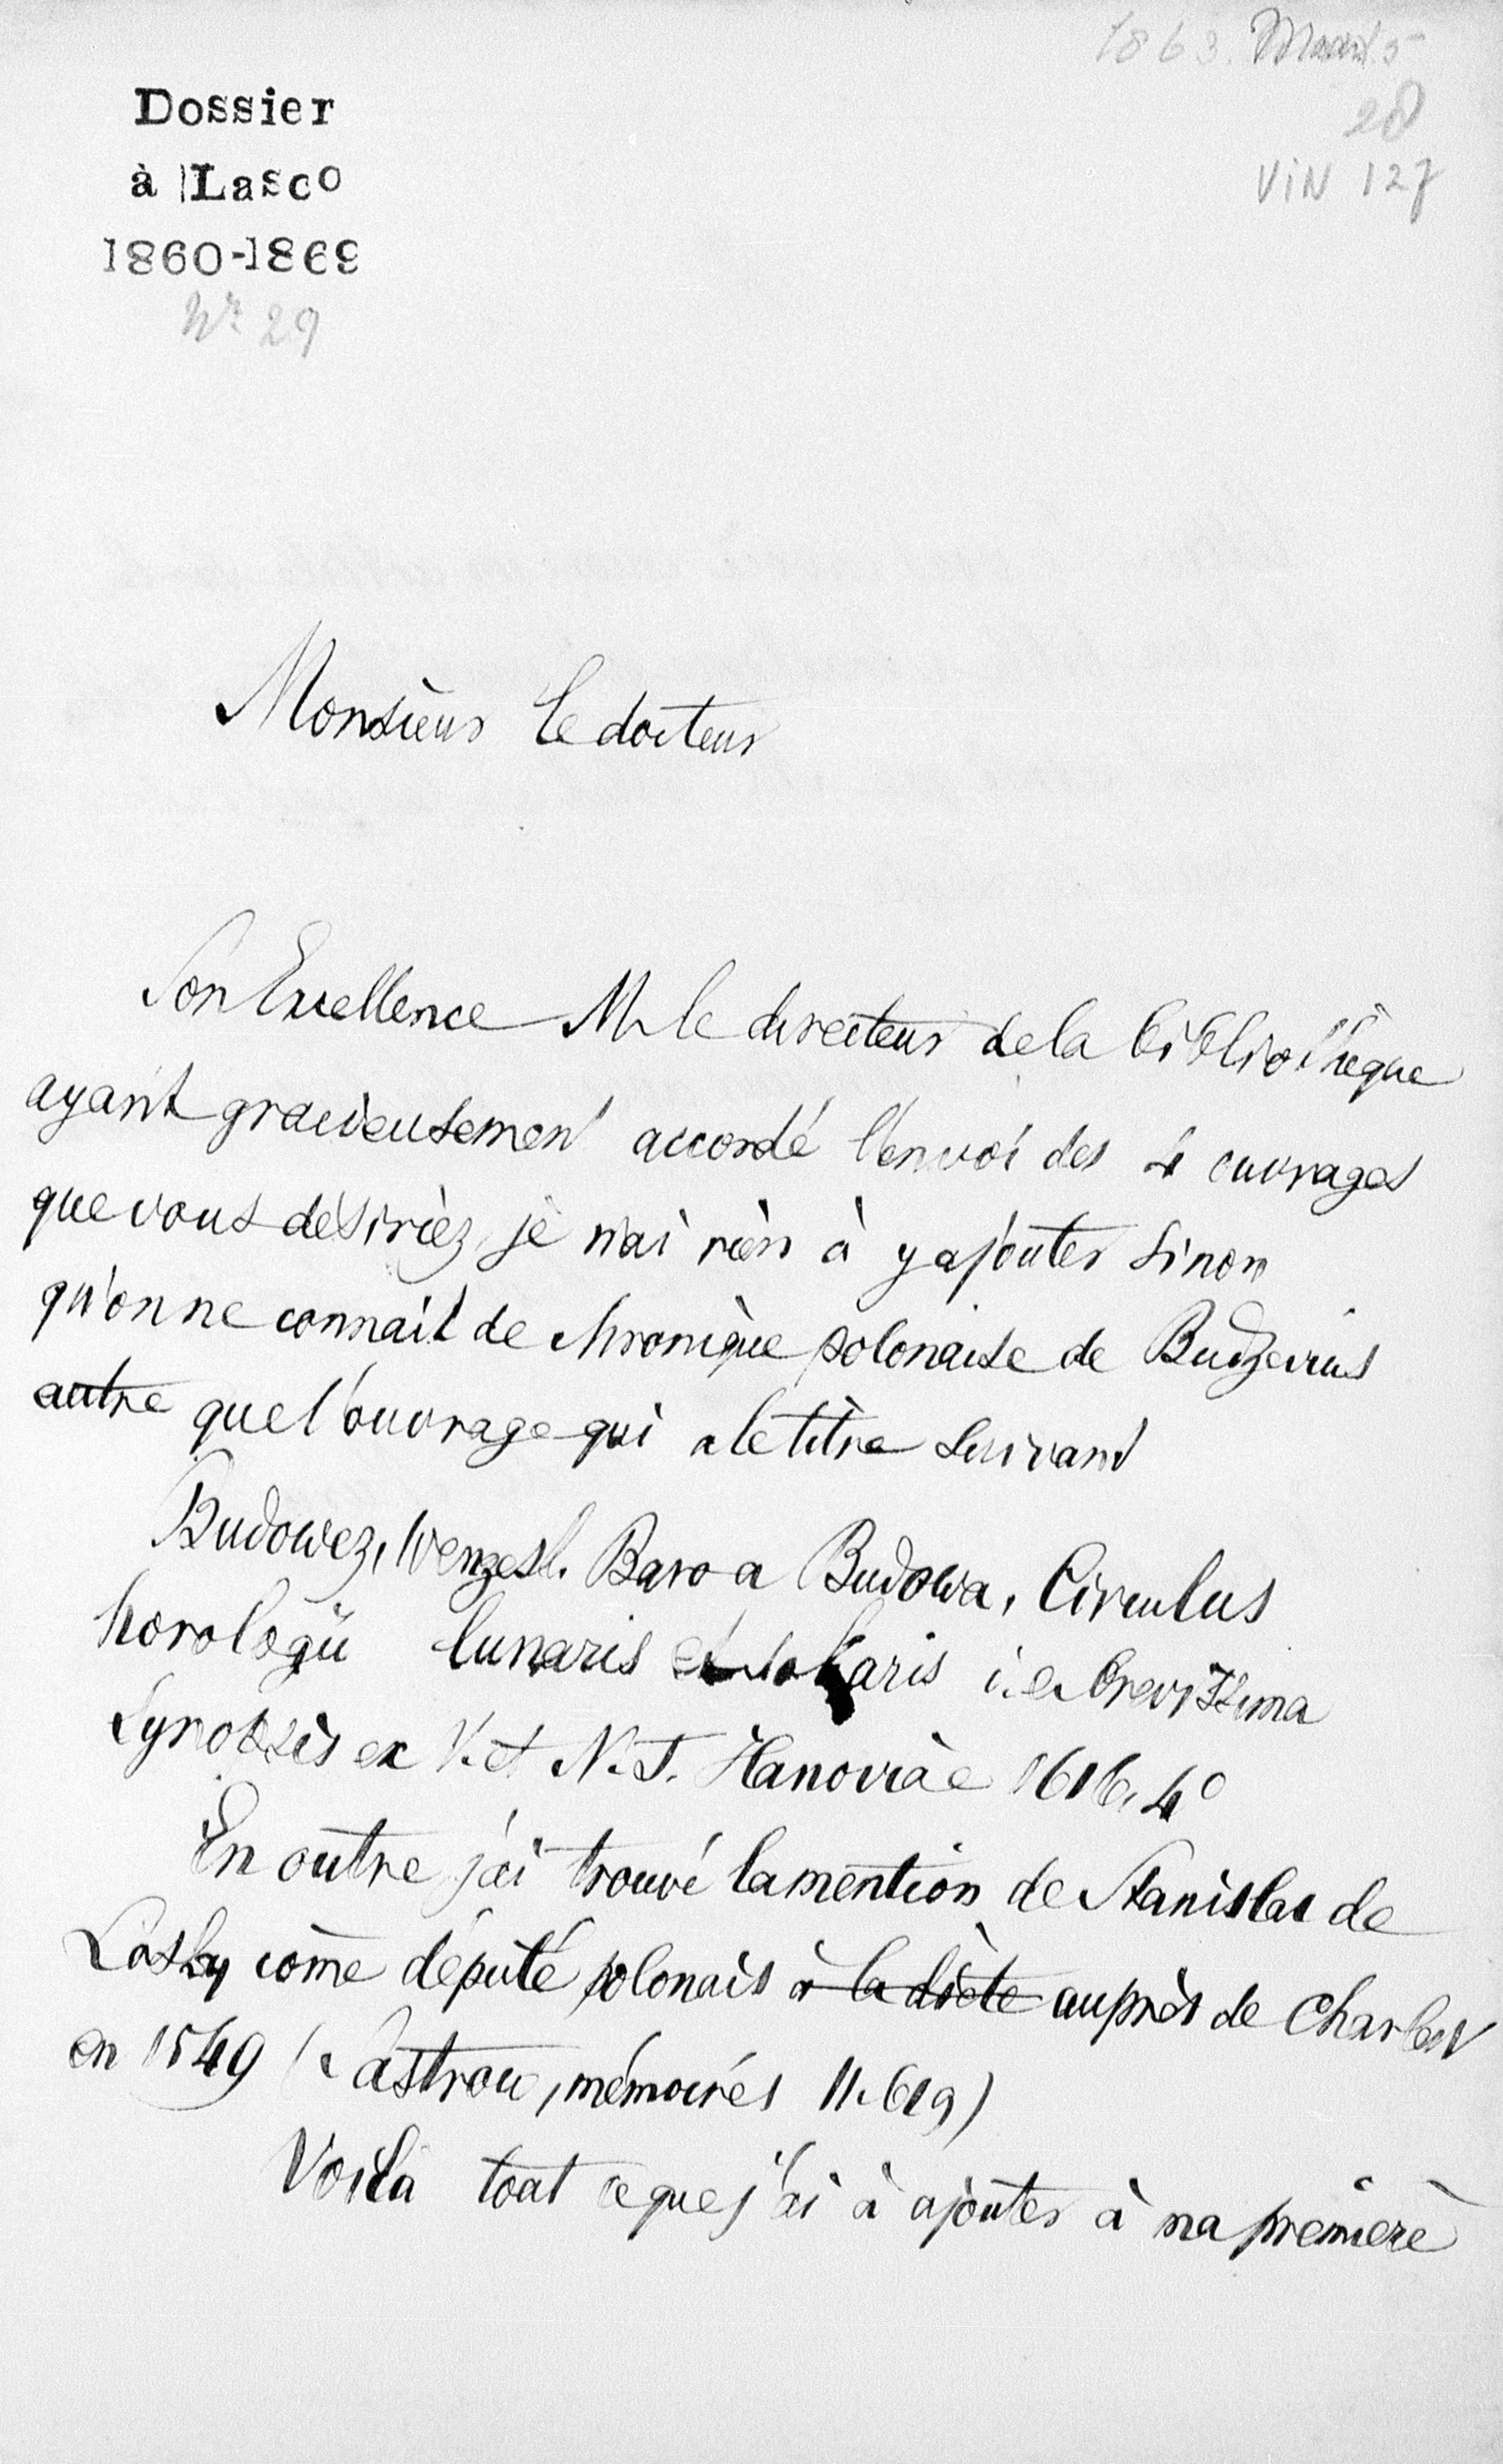 1863. Maart 5
28
VIN 127
Dossier
à Lasco
1860-1869
Nr. 29
Monsieur le docteur
Son Excellence M. le directeur de la bibliothèque
ayant gracieusement accordé l'envoi des 4 ouvrages
que vous désiriez, je n'ai rien à y ajouter sinon
qu'on ne connait de chronique polonaise de
autre que l'ouvrage qui a le titre suivant
Budowez, Wenzesl. Baro a Budowa, Circulus
horologii lunaris et solaris i.e. brevissima
Synopsis ex V. et N. T. Hanoviae 1616. 4°
En outre j'ai trouvé la mention de Stanislas de
Lasky come député polonais à la diète auprès de Charles V
en 1549 (Sastrow, mémoires II. 619)
Voila tout ce que j'ai à ajouter à ma première